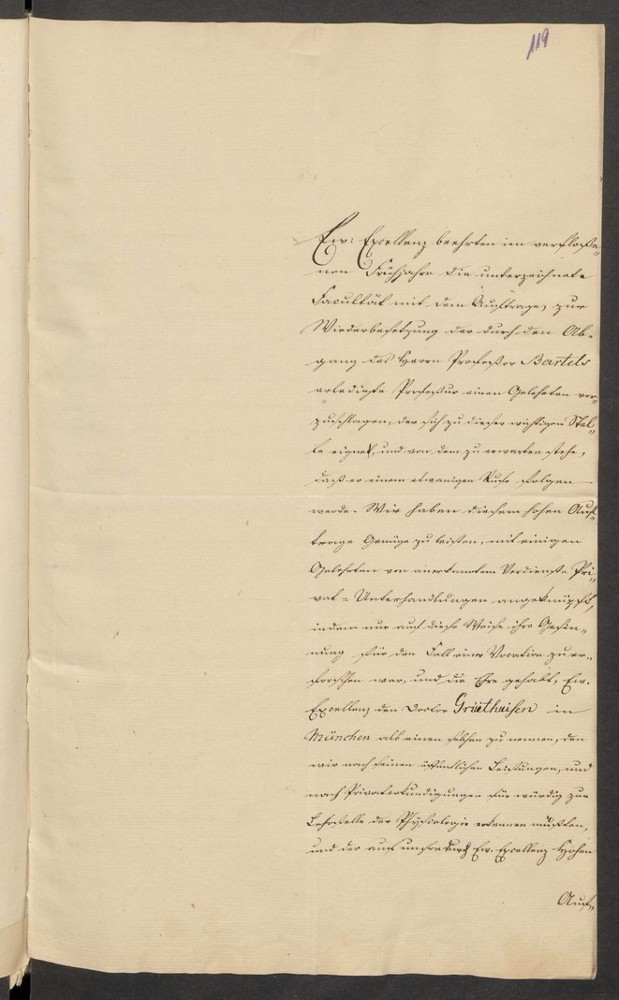 119
Ew: Excellenz beehrten im verfloße„
nen Frühjahre die unterzeichnete
Facultät mit dem Auftrage, zur
Wiederbesetzung der durch den Ab„
gang des Herrn Professor Bartels
erledigte Professur einen Gelehrten vor„
zuschlagen, der sich zu dieser wichtigen Stel„
le eignet, und von dem zu erwarten stehe,
daß er einem etwanigen Rufe folgen
werde. Wir haben diesem hohen Auf„
trage Genüge zu leisten, mit einigen
Gelehrten von anerkanntem Verdienste Pri„
vat-Unterhandlungen angeknüpft,
indem nur auf diese Weise ihre Gesin„
nung für den Fall einer Vocation zu er„
forschen war, und die Ehre gehabt, Ew.
Excellenz den Doctor Gruithuisen in
München als einen solchen zu nennen, den
wir nach seinen öffentlichen Leistungen, und
nach Privaterkundigungen für würdig zur
Lehrstelle der Physiologie erkennen mußten,
und der auf unsre durch Ew. Excellenz hohen
Auf„